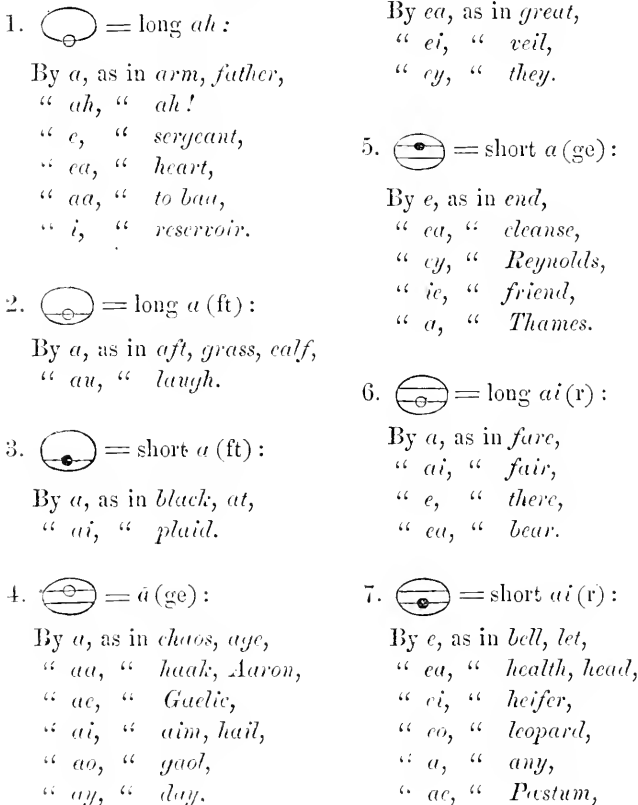 1. = long ah :
By a, as in arm, father,
“ ah, “ ah !
“ e, “ sergeant,
“ ea, “ heart,
“ aa, “ to baa,
“ i, “ reservoir.
2. = long a (ft) :
By a, as in aft, grass, calf,
“ au, “ laugh.
3. = short a (ft) :
By a, as in black, at,
“ ai, “ plaid.
4. = ā (ge) :
By a, as in chaos, age,
“ aa, “ haak, Aaron,
“ ae, “ Gaelic,
“ ai, “ aim, hail,
“ ao, “ gaol,
“ ay, “ day.
By ea, as in great,
“ ei, “ veil,
“ ey, “ they.
5. = short a (ge) :
By e, as in end,
“ ea, “ cleanse,
“ ey, “ Reynolds,
“ ie, “ friend,
“ a, “ Thames.
6. = long ai (r) :
By a, as in fare,
“ ai, “ fair,
“ e, “ there,
“ ea, “ bear.
7. = short ai (r) :
By e, as in bell, let,
“ ea, “ health, head,
“ ei, “ heifer,
“ eo, “ leopard,
“ a, “ any,
“ ae, “ Pæstum,